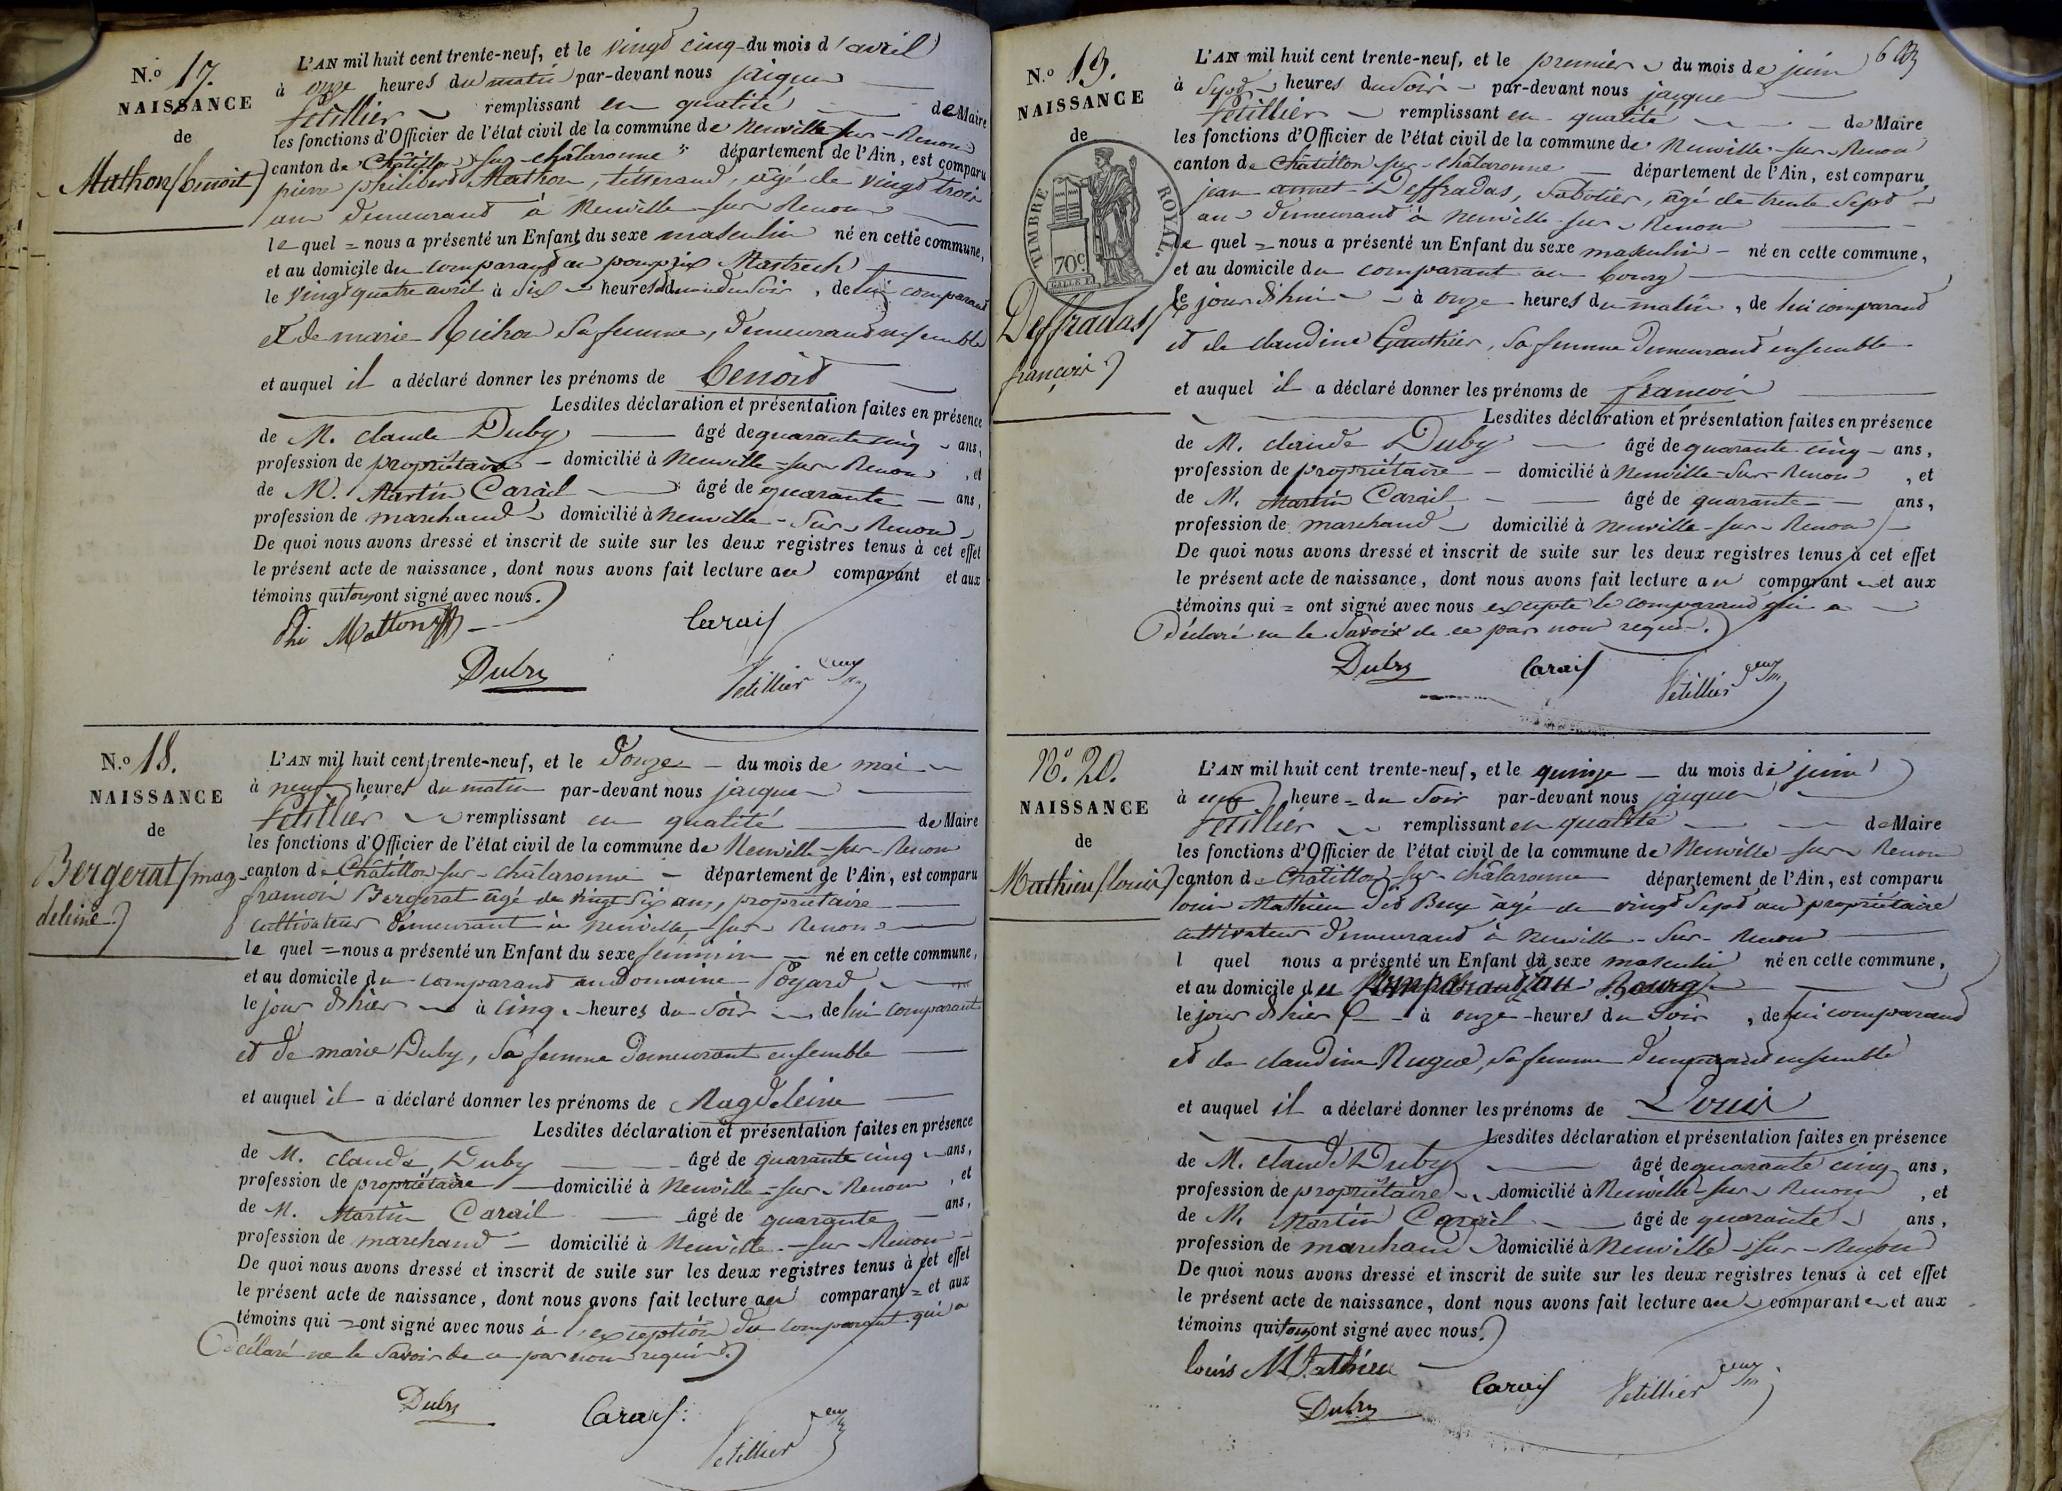 N.o 17.
NAISSANCE
de
Mathon (benoit)
L'AN mil huit cent trente-neuf, et le vingt cinq du mois d'avril
à onze heures du matin par-devant nous jacques
Petillier remplissant en qualité de Maire
les fonctions d'Officier de l'état civil de la commune de Neuville-sur-Renon
canton de Châtillon-sur-châlaronne département de l'Ain, est comparu
pierre philibert Mathon, tisserand, âgé de vingt trois
ans demeurant à Neuville-sur-Renon
le quel = nous a présenté un Enfant du sexe masculin né en cette commune,
et au domicile du comparant au
le vingt quatre avril à six heures du soir, de lui comparant
et de marie Richon sa femme, demeurant ensemble
et auquel il a déclaré donner les prénoms de benoit
Lesdites déclaration et présentation faites en présence
de M. claude Duby âgé de quarante cinq ans,
profession de propriétaire domicilié à Neuville-sur-Renon, et
de M. Martin Carail âgé de quarante ans,
profession de marchand domicilié à Neuville-sur-Renon
De quoi nous avons dressé et inscrit de suite sur les deux registres tenus à cet effet
le présent acte de naissance, dont nous avons fait lecture au comparant et aux
témoins qui tous ont signé avec nous.
Phi Matton Carail
Duby Petillier
N.o 18.
NAISSANCE
de
Bergerat (mag-
deleine)
L'AN mil huit cent trente-neuf, et le douze du mois de mai
à neuf heures du matin par-devant nous jacques
Petillier remplissant en qualité de Maire
les fonctions d'Officier de l'état civil de la commune de Neuville-sur-Renon
canton de Châtillon-sur-châlaronne département de l'Ain, est comparu
francois Bergerat âgé de vingt six ans, propriétaire
cultivateur demeurant à Neuville-sur-Renon
le quel = nous a présenté un Enfant du sexe féminin né en cette commune,
et au domicile du comparant au domaine Poyard
le jour d'hier à cinq heures du soir, de lui comparant
et de marie Duby, sa femme demeurant ensemble
et auquel il a déclaré donner les prénoms de Magdeleine
Lesdites déclaration et présentation faites en présence
de M. claude Duby âgé de quarante cinq ans,
profession de propriétaire domicilié à Neuville-sur-Renon, et
de M. Martin Carail âgé de quarante ans,
profession de marchand domicilié à Neuville-sur-Renon
De quoi nous avons dressé et inscrit de suite sur les deux registres tenus à cet effet
le présent acte de naissance, dont nous avons fait lecture au comparant et aux
témoins qui = ont signé avec nous à l'exception du comparant qui a
déclaré ne le savoir de ce par nous requis.
Duby Carail Petillier
N.o 19.
NAISSANCE
de
TIMBRE ROYAL.
70c.
Deffradas
(françois)
L'AN mil huit cent trente-neuf, et le premier du mois de juin
à sept heures du soir par-devant nous jacques
Petillier remplissant en qualité de Maire
les fonctions d'Officier de l'état civil de la commune de Neuville-sur-Renon
canton de Châtillon-sur-châlaronne département de l'Ain, est comparu
jean annet Deffradas, sabotier, âgé de trente sept
ans demeurant à Neuville-sur-Renon
le quel = nous a présenté un Enfant du sexe masculin né en cette commune,
et au domicile du comparant au bourg
le jour d'hui à onze heures du matin, de lui comparant
et de claudine Gauthier, sa femme demeurant ensemble
et auquel il a déclaré donner les prénoms de françois
Lesdites déclaration et présentation faites en présence
de M. claude Duby âgé de quarante cinq ans,
profession de propriétaire domicilié à Neuville-sur-Renon, et
de M. Martin Carail âgé de quarante ans,
profession de marchand domicilié à Neuville-sur-Renon
De quoi nous avons dressé et inscrit de suite sur les deux registres tenus à cet effet
le présent acte de naissance, dont nous avons fait lecture au comparant et aux
témoins qui = ont signé avec nous excepté le comparant qui a
déclaré ne le savoir de ce par nous requis.
Duby Carail Petillier
N.o 20.
NAISSANCE
de
Mathieu (louis)
L'AN mil huit cent trente-neuf, et le quinze du mois de juin
à une heure du soir par-devant nous jacques
Petillier remplissant en qualité de Maire
les fonctions d'Officier de l'état civil de la commune de Neuville-sur-Renon
canton de Châtillon-sur-châlaronne département de l'Ain, est comparu
louis Mathieu dit Bux âgé de vingt sept ans propriétaire
cultivateur demeurant à Neuville-sur-Renon
l quel nous a présenté un Enfant du sexe masculin né en cette commune,
et au domicile du comparant au Bourg
le jour d'hier à onze heures du soir, de lui comparant
et de claudine sa femme demeurant ensemble
et auquel il a déclaré donner les prénoms de Louis
Lesdites déclaration et présentation faites en présence
de M. claude Duby âgé de quarante cinq ans,
profession de propriétaire domicilié à Neuville-sur-Renon, et
de M. Martin Carail âgé de quarante ans,
profession de marchand domicilié à Neuville-sur-Renon
De quoi nous avons dressé et inscrit de suite sur les deux registres tenus à cet effet
le présent acte de naissance, dont nous avons fait lecture au comparant et aux
témoins qui tous ont signé avec nous.
louis Mathieu Carail Petillier
Duby